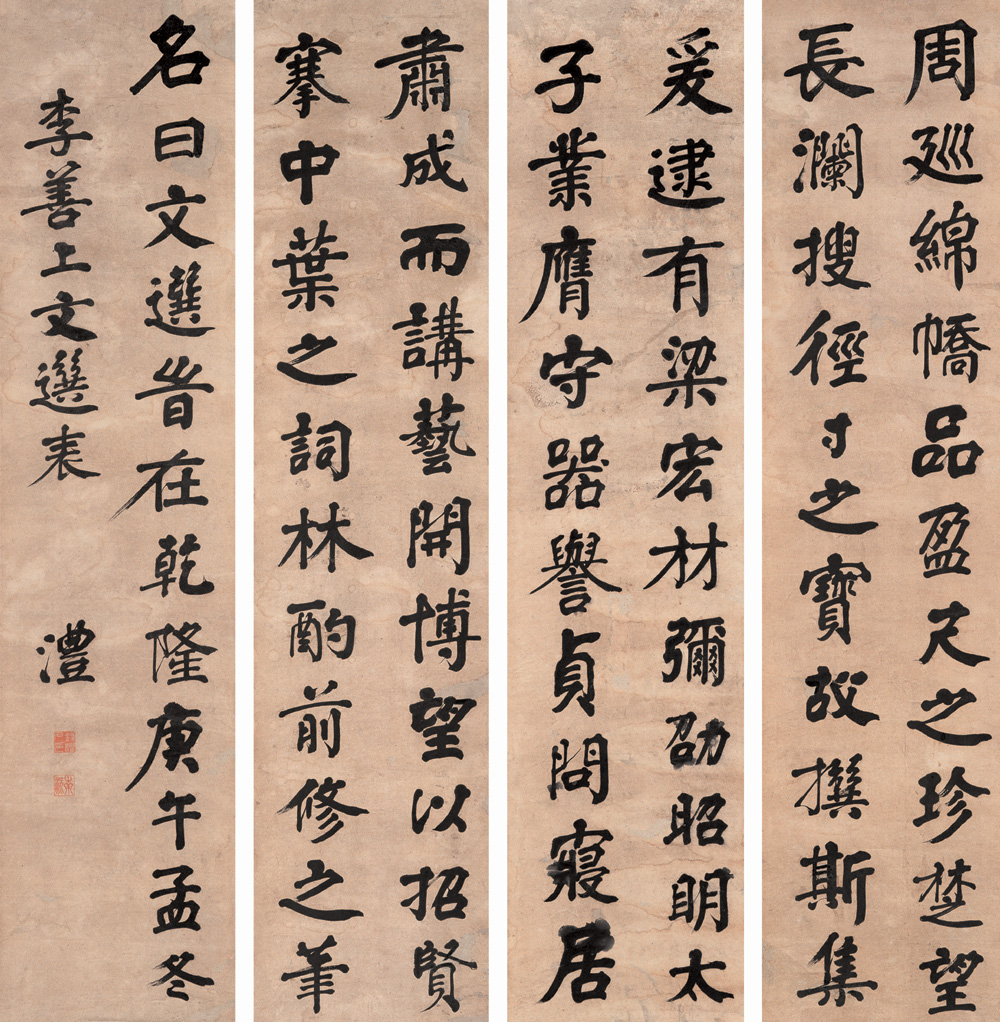 周廵綿嶠品盈尺之珍楚望
長瀾搜徑寸之寶故撰斯集
爰逮有梁宏材彌劭昭明太
子業膺守器譽貞問寢居
肅成而講藝開博望以招賢
搴中葉之詞林酌前修之筆
名曰文選昔在乾隆庚午孟冬
李善上文選表 澧